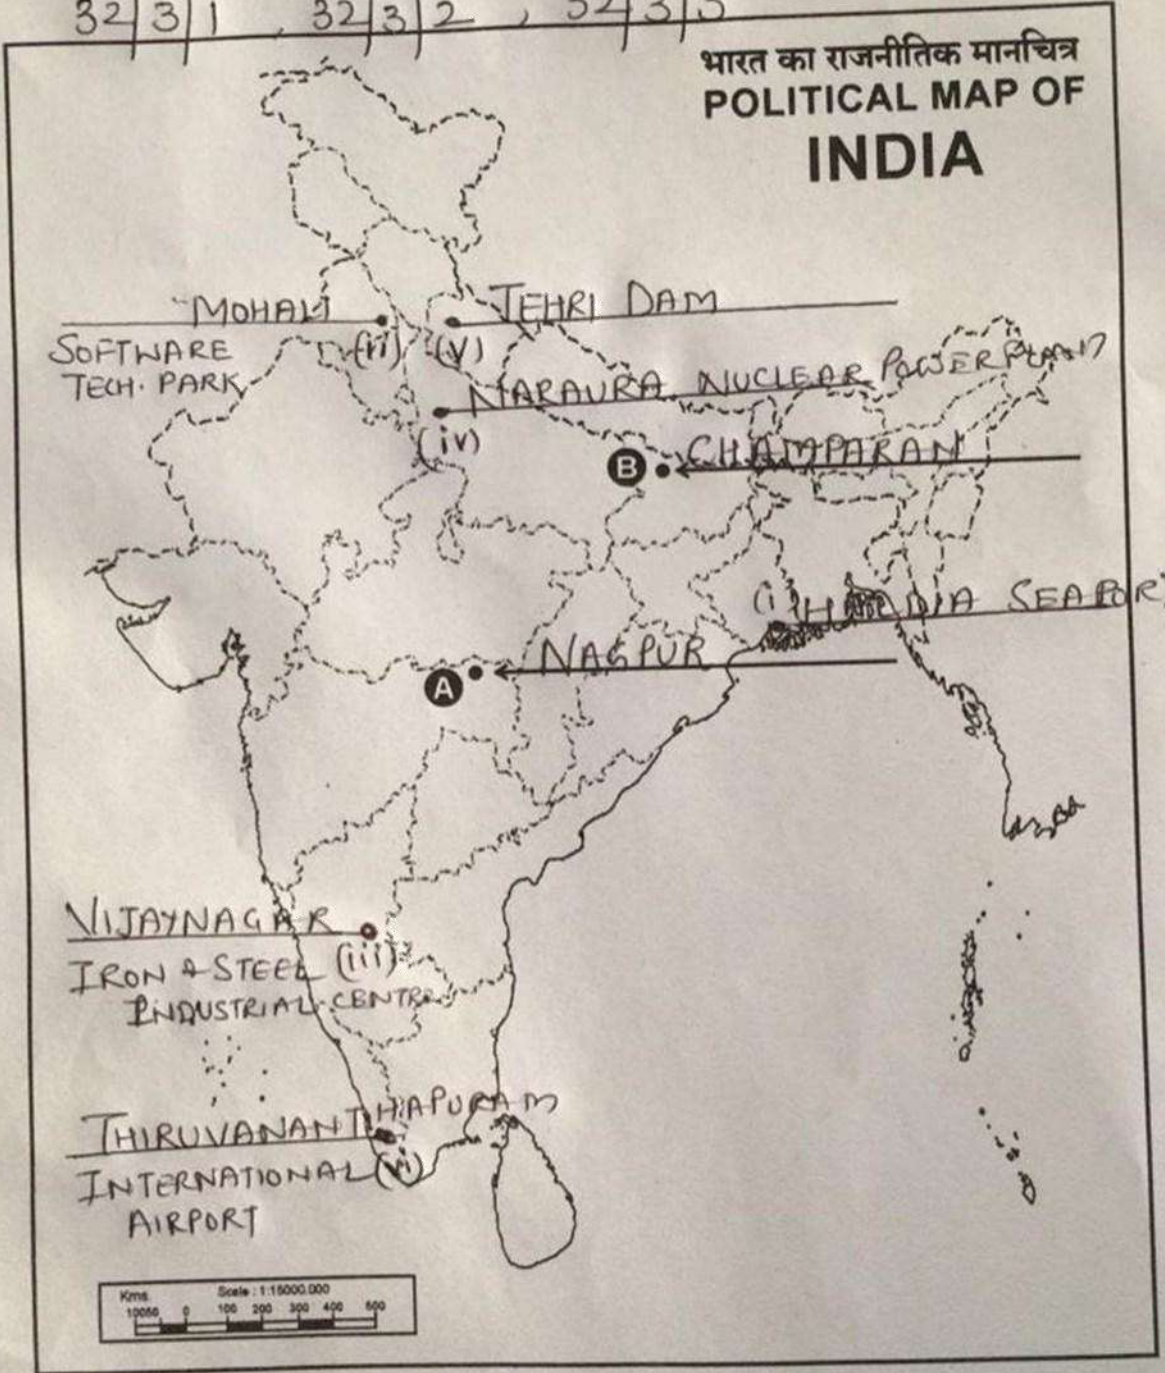 32/3/1 , 32/3/2 , 32/3/3
भारत का राजनीतिक मानचित्र
POLITICAL MAP OF
INDIA
MOHALI
SOFTWARE
TECH. PARK
(ii)
TEHRI DAM
(v)
NARAURA NUCLEAR POWER PLANT
(iv)
B
CHAMPARAN
(i) HALDIA SEAPORT
A
NAGPUR
VIJAYNAGAR
IRON & STEEL (iii)
INDUSTRIAL CENTRE
THIRUVANANTHAPURAM
INTERNATIONAL (vi)
AIRPORT
Kms. Scale : 1:15000.000
10050 0 100 200 300 400 500